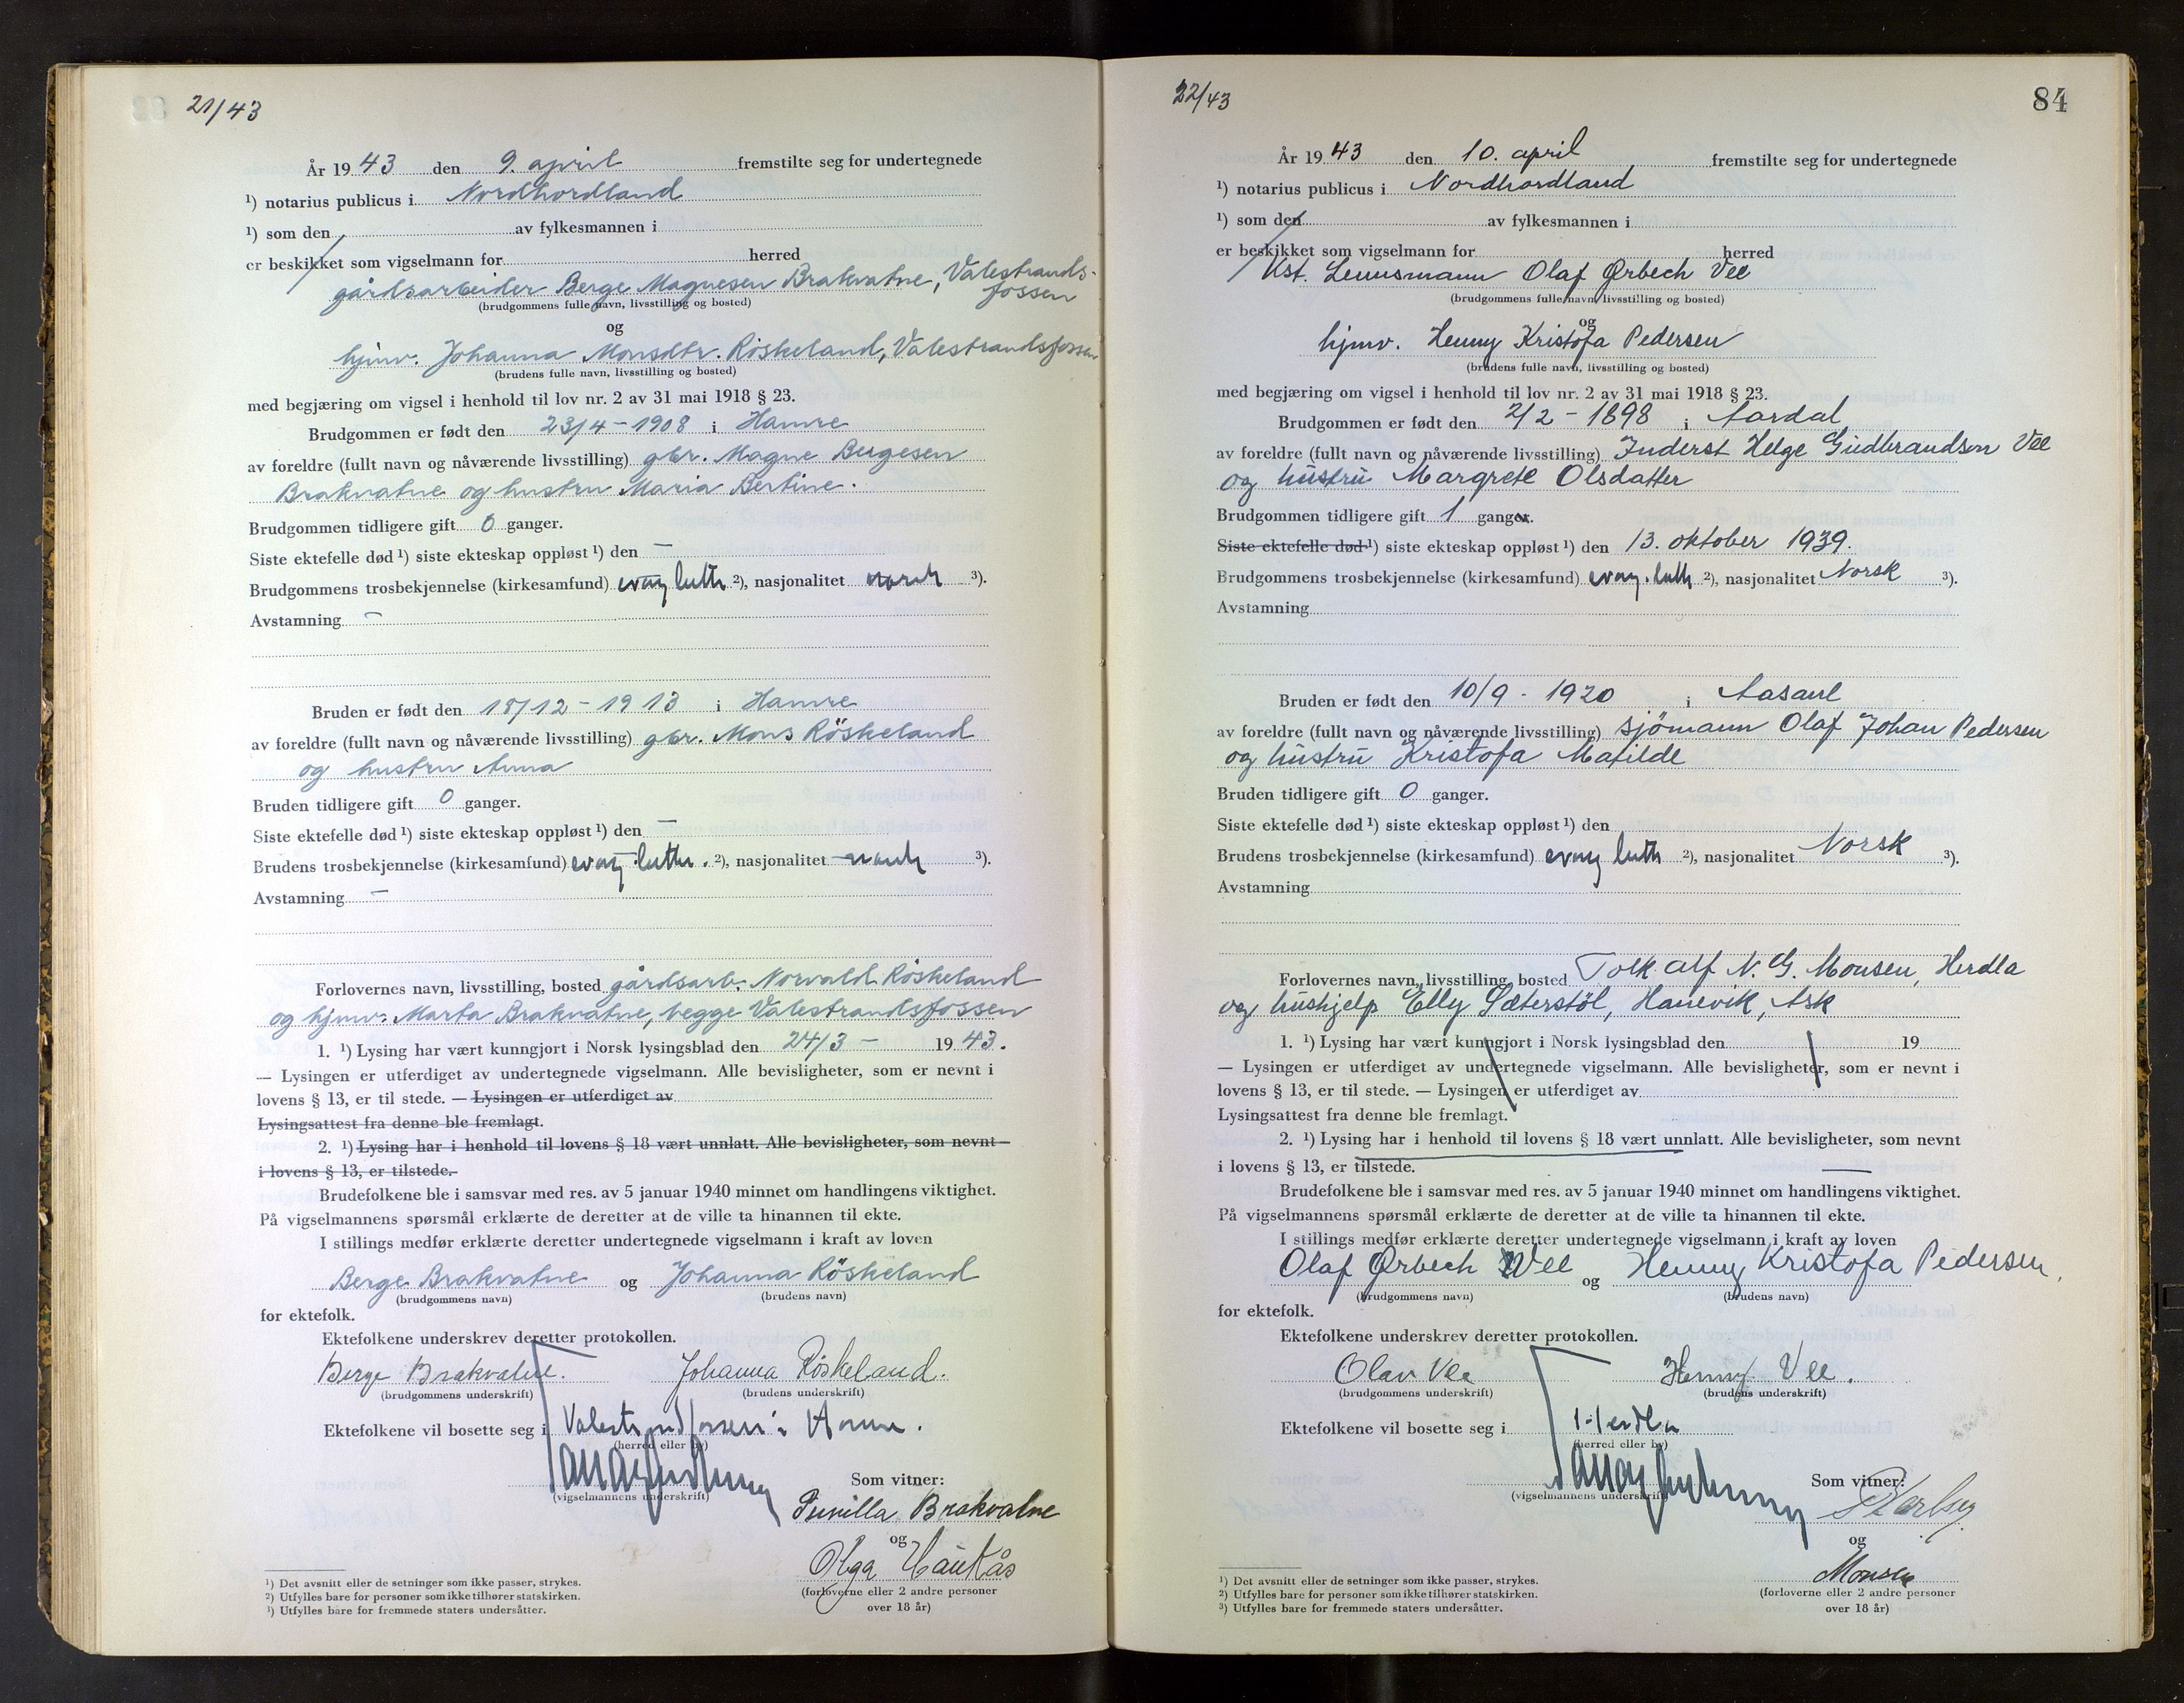 21/43
År 1943 den 9. april fremstilte seg for undertegnede
¹) notarius publicus i Nordhordland
¹) som den av fylkesmannen i
er beskikket som vigselmann for herred
gårdsarbeider Berge Magnesen Brakvatne, Valestrands-
fossen
(brudgommens fulle navn, livsstilling og bosted)
og
hjmv. Johanna Monsdtr. Röskeland, Valestrandsfossen
(brudens fulle navn, livsstilling og bosted)
med begjæring om vigsel i henhold til lov nr. 2 av 31 mai 1918 § 23.
Brudgommen er født den 23/4 - 1908 i Hamre
av foreldre (fullt navn og nåværende livsstilling) gbr. Magne Bergesen
Brakvatne og hustru Maria Bertine.
Brudgommen tidligere gift 0 ganger.
Siste ektefelle død ¹) siste ekteskap oppløst ¹) den —
Brudgommens trosbekjennelse (kirkesamfund) evang luth ²), nasjonalitet norsk ³).
Avstamning —
Bruden er født den 18/12 - 1913 i Hamre
av foreldre (fullt navn og nåværende livsstilling) gbr. Mons Röskeland
og hustru Anna
Bruden tidligere gift 0 ganger.
Siste ektefelle død ¹) siste ekteskap oppløst ¹) den —
Brudens trosbekjennelse (kirkesamfund) evang. luth. ²), nasjonalitet norsk ³).
Avstamning —
Forlovernes navn, livsstilling, bosted gårdsarb. Norvald Röskeland
og hjmv. Marta Brakvatne, begge Valestrandsfossen
1. ¹) Lysing har vært kunngjort i Norsk lysingsblad den 24/3 - 1943.
— Lysingen er utferdiget av undertegnede vigselmann. Alle bevisligheter, som er nevnt i
lovens § 13, er til stede. — Lysingen er utferdiget av
Lysingsattest fra denne ble fremlagt.
2. ¹) Lysing har i henhold til lovens § 18 vært unnlatt. Alle bevisligheter, som nevnt
i lovens § 13, er tilstede.
Brudefolkene ble i samsvar med res. av 5 januar 1940 minnet om handlingens viktighet.
På vigselmannens spørsmål erklærte de deretter at de ville ta hinannen til ekte.
I stillings medfør erklærte deretter undertegnede vigselmann i kraft av loven
Berge Brakvatne og Johanna Röskeland
(brudgommens navn) (brudens navn)
for ektefolk.
Ektefolkene underskrev deretter protokollen.
Berge Brakvatne. Johanna Röskeland.
(brudgommens underskrift) (brudens underskrift)
Ektefolkene vil bosette seg i Valestrandsfossen i Hamre.
(herred eller by)
Som vitner:
(vigselmannens underskrift)
Pernilla Brakvatne
og
Olga Haukås
(forloverne eller 2 andre personer
over 18 år)
¹) Det avsnitt eller de setninger som ikke passer, strykes.
²) Utfylles bare for personer som ikke tilhører statskirken.
³) Utfylles bare for fremmede staters undersåtter.
22/43
84
År 1943 den 10. april fremstilte seg for undertegnede
¹) notarius publicus i Nordhordland
¹) som den av fylkesmannen i
er beskikket som vigselmann for herred
Kst. Lensmann Olaf Ørbech Vee
(brudgommens fulle navn, livsstilling og bosted)
og
hjmv. Henny Kristofa Pedersen
(brudens fulle navn, livsstilling og bosted)
med begjæring om vigsel i henhold til lov nr. 2 av 31 mai 1918 § 23.
Brudgommen er født den 2/2 - 1898 i Aardal
av foreldre (fullt navn og nåværende livsstilling) Inderst Helge Gudbrandson Vee
og hustru Margrete Olsdatter
Brudgommen tidligere gift 1 ganger.
Siste ektefelle død ¹) siste ekteskap oppløst ¹) den 13. oktober 1939.
Brudgommens trosbekjennelse (kirkesamfund) evang. luth ²), nasjonalitet Norsk ³).
Avstamning
Bruden er født den 10/9 - 1920 i Aasane
av foreldre (fullt navn og nåværende livsstilling) sjömann Olaf Johan Pedersen
og hustru Kristofa Matilde
Bruden tidligere gift 0 ganger.
Siste ektefelle død ¹) siste ekteskap oppløst ¹) den
Brudens trosbekjennelse (kirkesamfund) evang luth ²), nasjonalitet Norsk ³).
Avstamning
Forlovernes navn, livsstilling, bosted Tolk Alf N. G. Monsen, Herdla
og hushjelp Elly Sæterstöl, Hanevik, Ask
1. ¹) Lysing har vært kunngjort i Norsk lysingsblad den 19
— Lysingen er utferdiget av undertegnede vigselmann. Alle bevisligheter, som er nevnt i
lovens § 13, er til stede. — Lysingen er utferdiget av
Lysingsattest fra denne ble fremlagt.
2. ¹) Lysing har i henhold til lovens § 18 vært unnlatt. Alle bevisligheter, som nevnt
i lovens § 13, er tilstede.
Brudefolkene ble i samsvar med res. av 5 januar 1940 minnet om handlingens viktighet.
På vigselmannens spørsmål erklærte de deretter at de ville ta hinannen til ekte.
I stillings medfør erklærte deretter undertegnede vigselmann i kraft av loven
Olaf Ørbech Vee og Henny Kristofa Pedersen.
(brudgommens navn) (brudens navn)
for ektefolk.
Ektefolkene underskrev deretter protokollen.
Olav Vee Henny Vee.
(brudgommens underskrift) (brudens underskrift)
Ektefolkene vil bosette seg i Herdla
(herred eller by)
Som vitner:
(vigselmannens underskrift)
og
Monsen
(forloverne eller 2 andre personer
over 18 år)
¹) Det avsnitt eller de setninger som ikke passer, strykes.
²) Utfylles bare for personer som ikke tilhører statskirken.
³) Utfylles bare for fremmede staters undersåtter.